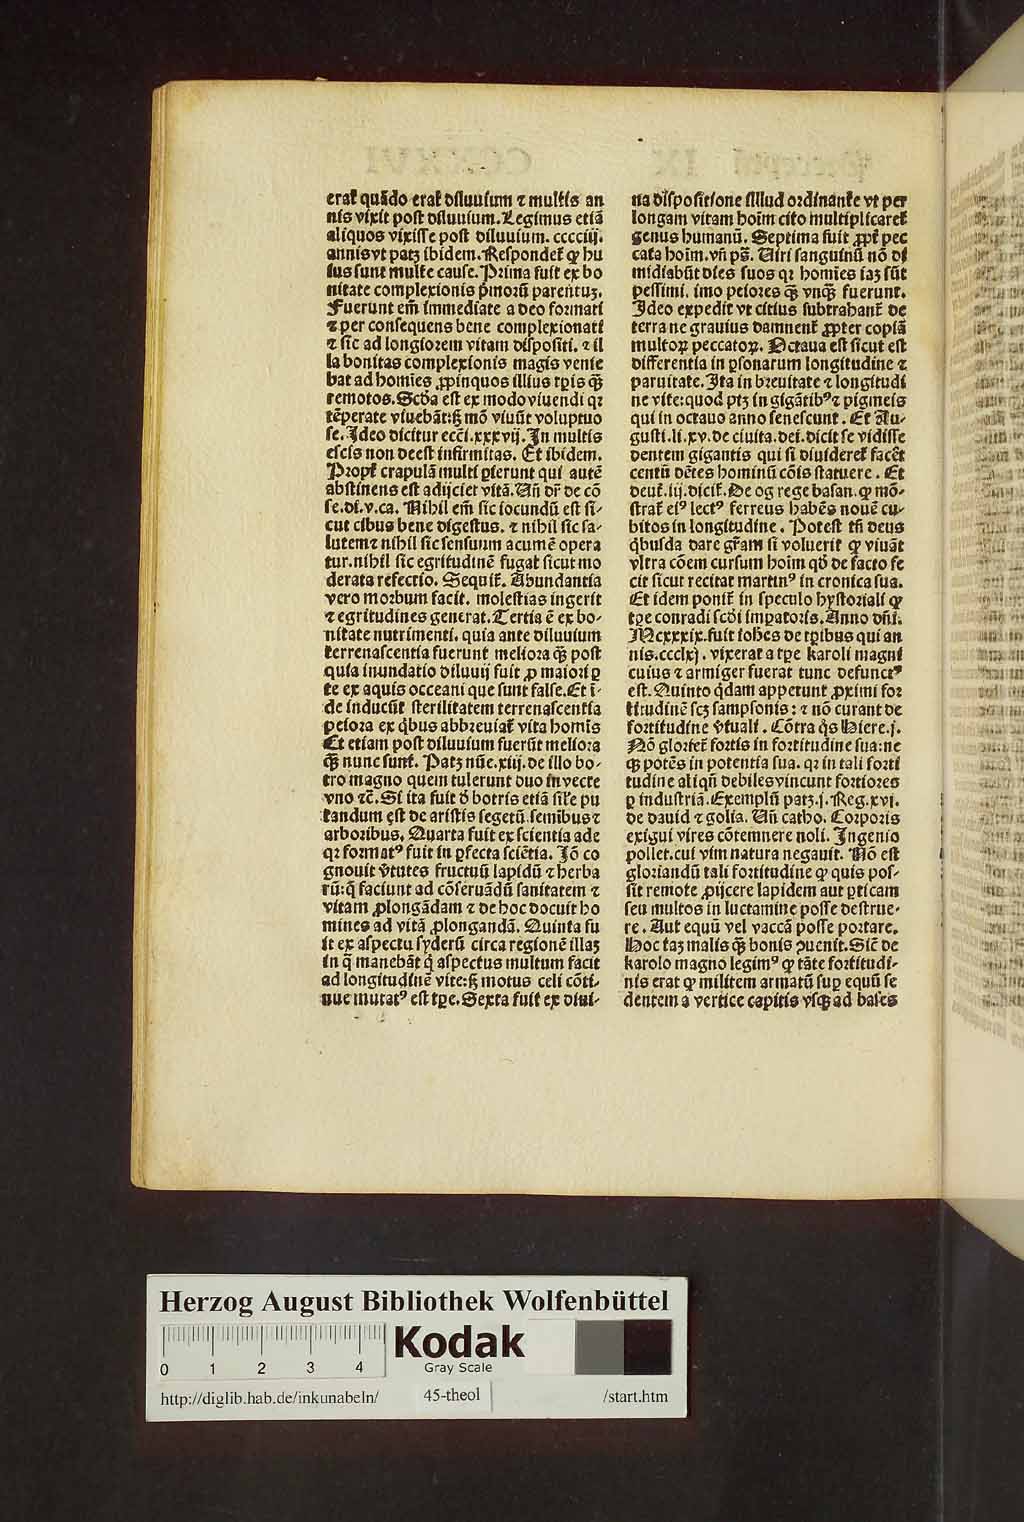 erat̃ quãdo erat̃ diluuium ⁊ multis an
nis vixit post diluuium. Legimus etiã
aliquos vixisse post diluuium. cccciij.
annis vt patꝫ ibidem. Respondet̃ ꝙ hu
ius sunt multe cause. Prima fuit ex bo
nitate complexionis p̃moꝝ parentuꝫ.
Fuerunt em̃ immediate a deo formati
⁊ per consequens bene complexionati
⁊ sic ad longiorem vitam dispositi. ⁊ il
la bonitas complexionis magis venie
bat ad homĩes ꝓpinquos illius tꝑis ꝙ̃
remotos. Scďa est ex modo viuendi qꝛ
tẽperate viuebãt: ꝫ mõ viuũt voluptuo
se. Ideo dicitur ecci̇. xxxvij. In multis
escis non deest infirmitas. Et ibidem.
Propt̃ crapulã multi ꝑierunt qui autẽ
abstinens est adijciet vitã. Vñ dr̃ de cõ
se. di. v. ca. Nihil em̃ sic iocundũ est si-
cut cibus bene digestus. ⁊ nihil sic sa-
lutem ⁊ nihil sic sensuum acumẽ opera
tur. nihil sic egritudinẽ fugat sicut mo
derata refectio. Sequit̃. Abundantia
vero morbum facit. molestias ingerit
⁊ egritudines generat. Tertia ẽ ex bo-
nitate nutrimenti. quia ante diluuium
terrenascentia fuerunt meliora ꝙ̃ post
quia inundatio diluuij fuit ꝓ maiori ꝑ
te ex aquis occeani que sunt salse. Et ĩ-
de inducũt sterilitatem terrenascentia
peiora ex q̇bus abbreuiat̃ vita homĩs
Et etiam post diluuium fuerũt meliora
ꝙ̃ nunc sunt. Patꝫ nũe. xiij. de illo bo-
tro magno quem tulerunt duo in vecte
vno ⁊c̃. Si ita fuit ď botris etiã sil̃e pu
tandum est de aristis segetũ seminibus ⁊
arboribus. Quarta fuit ex scientia ade
qꝛ format⁹ fuit in ꝑfecta sciẽtia. Iõ co
gnouit v̓tutes fructuũ lapidũ ⁊ herba
rũ: q̃ faciunt ad cõseruãdũ sanitatem ⁊
vitam ꝓlongãdam ⁊ de hoc docuit ho
mines ad vitã ꝓlongandã. Quinta fu
it ex aspectu syderũ circa regionẽ illaꝫ
in q̃ manebãt q̇ aspectus multum facit
ad longitudinẽ vite: ꝫ motus celi cõti-
nue mutat⁹ est tꝑe. Sexta fuit ex diui-
na dispositione illud ordinante vt per
longam vitam hoĩm cito multiplicaret̃
genus humanũ. Septima fuit ꝓpt̃ pec
cata hoĩm. vñ ps̃. Viri sanguinũ nõ di
midiabũt dies suos qꝛ homĩes iaꝫ sũt
pessimi. imo peiores ꝙ̃ vnꝙ̃ fuerunt.
Ideo expedit vt citius subtrahant̃ de
terra ne grauius damnent̃ ꝓpter copiã
multoꝝ peccatoꝝ. Octaua est sicut est
differentia in ꝑsonarum longitudine ⁊
paruitate. Ita in breuitate ⁊ longitudi
ne vite: quod ptꝫ in gigãtib⁹ ⁊ pigmeis
qui in octauo anno senescunt. Et Au-
gusti. li. xv. de ciuita. dei. dicit se vidisse
dentem gigantis qui si diuideret̃ facẽt
centũ dẽtes hominũ cõis stature. Et
deut̃. iij. dicit̃. De og rege basan. ꝙ mõ-
strat̃ ei⁹ lect⁹ ferreus habẽs nouẽ cu-
bitos in longitudine. Potest tñ deus
q̇busda dare gr̃am si voluerit ꝙ viuãt
vltra cõem cursum hoĩm qď de facto fe
cit sicut recitat martin⁹ in cronica sua.
Et idem ponit̃ in speculo hystoriali ꝙ
tꝑe conradi scďi imꝑatoris. Anno dñi.
Mcxxxix. fuit ioh̃es de tꝑibus qui an
nis. ccclxj. vixerat a tꝑe karoli magni
cuius ⁊ armiger fuerat tunc defunct⁹
est. Quinto q̇dam appetunt ꝓximi for
titudinẽ scꝫ sampsonis: ⁊ nõ curant de
fortitudine v̓tuali. Cõtra q̇s Hiere. j.
Nõ gloriet̃ fortis in fortitudine sua: ne
ꝙ potẽs in potentia sua. qꝛ in tali forti
tudine aliqñ debiles vincunt fortiores
ꝑ industriã. Exemplũ patꝫ. j. Reg. xvj.
de dauid ⁊ golia. Vñ catho. Corporis
exigui vires cõtemnere noli. Ingenio
pollet. cui vim natura negauit. Nõ est
gloriandũ tali fortitudine ꝙ quis pos-
sit remote ꝓijcere lapidem aut ꝑticam
seu multos in luctamine posse destrue-
re. Aut equũ vel vaccã posse portare.
Hoc taꝫ malis ꝙ̃ bonis ꝯuenit. Sic̃ de
karolo magno legim⁹ ꝙ tãte fortitudi-
nis erat ꝙ militem armatũ suꝑ equũ se
dentem a vertice capitis vsqꝫ ad bases
Herzog August Bibliothek Wolfenbüttel
0 1 2 3 4
Kodak
Gray Scale
http://diglib.hab.de/inkunabeln/ 45-theol /start.htm